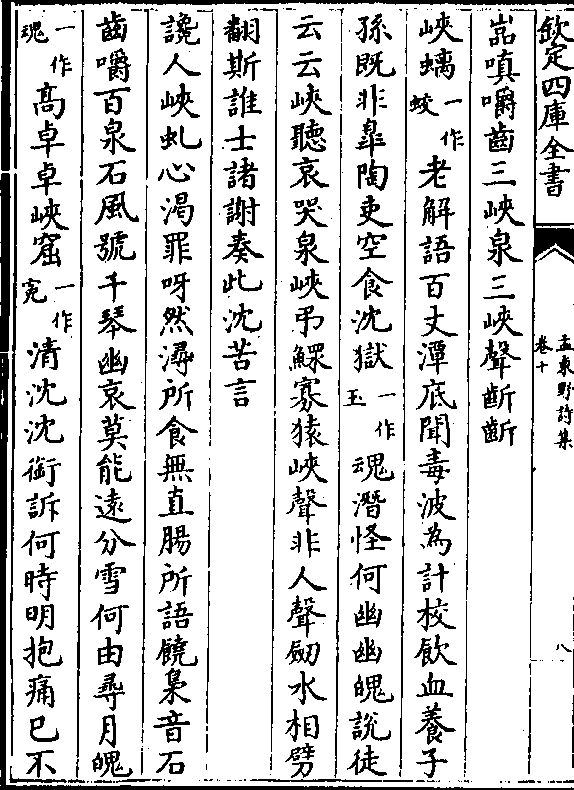 欽定四庫全書
孟東野詩集
卷十
八
嵓嗔嚼齒三峽泉三峽聲齗齗
峽螭一作蛟老解語百丈潭底聞毒波為計校飲血養子
孫既非臯陶吏空食沈獄一作玉魂潛怪何幽幽魄說徒
云云峽聽哀哭泉峽弔鰥寡猿峽聲非人聲劒水相劈
翻斯誰士諸謝奏此沈苦言
讒人峽虬心渴罪呀然潯所食無直腸所語饒梟音石
齒嚼百泉石風號千琴幽哀莫能遠分雪何由尋月魄
一作魂高卓卓峽窟一作寃清沈沈銜訴何時明抱痛已不